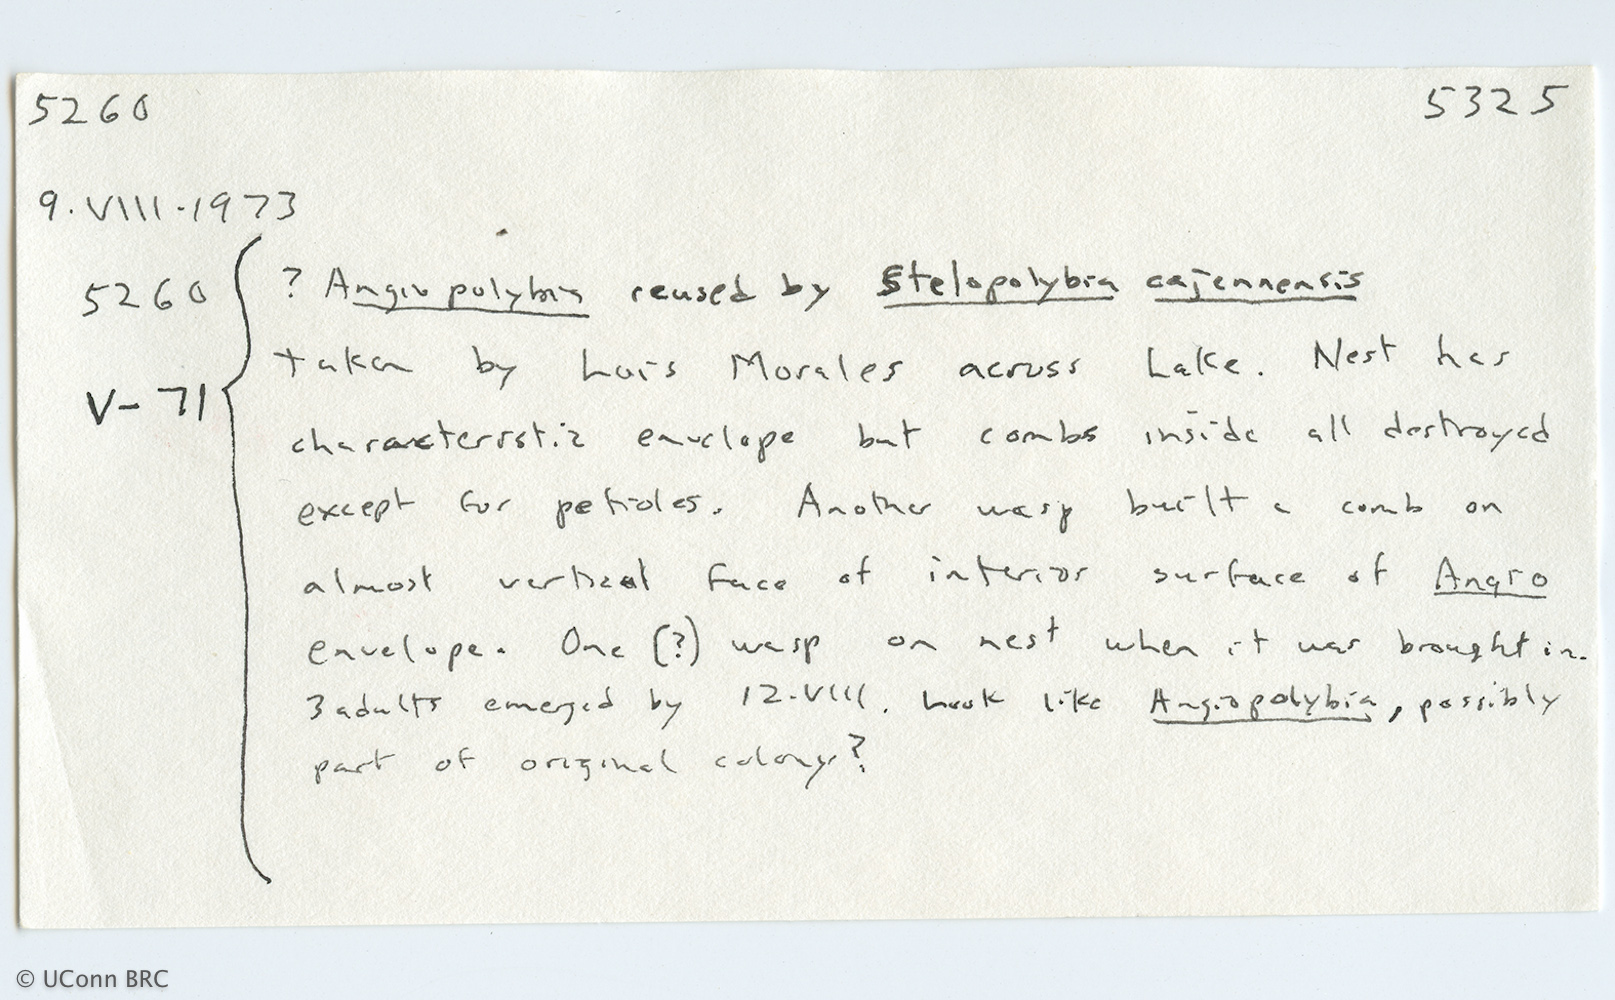 5260 5325
9.VIII.1973
5260 ? Angiopolybia reused by Stelopolybia cajennensis
taken by Luis Morales across Lake. Nest has
V-71
characteristic envelope but combs inside all destroyed
except for petioles. Another wasp built a comb on
almost vertical face of interior surface of Angio
envelope. One (?) wasp on nest when it was brought in.
3 adults emerged by 12.VIII. Look like Angiopolybia, possibly
part of original colony?
© UConn BRC